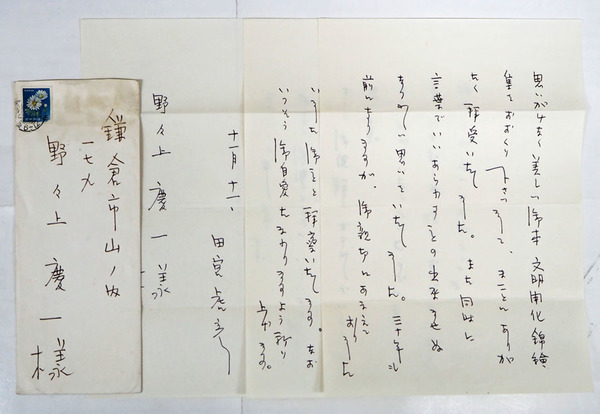 思いがけなく美しい御本 文明開化錦絵
集をおおくり下さいまして、まことにありが
たく拝受いたしました。また同時に
言葉でいいあらわすことの出来ませぬ
思いをいたしました。三十年
前になりますが、御親切にあまえて
おりました
御本を拝受いたします。なお
いっそう御自愛なさいますよう祈り
上げます。
十一月十一
田宮虎彦
野々上慶一様
鎌倉市山ノ内
一七九
野々上慶一様